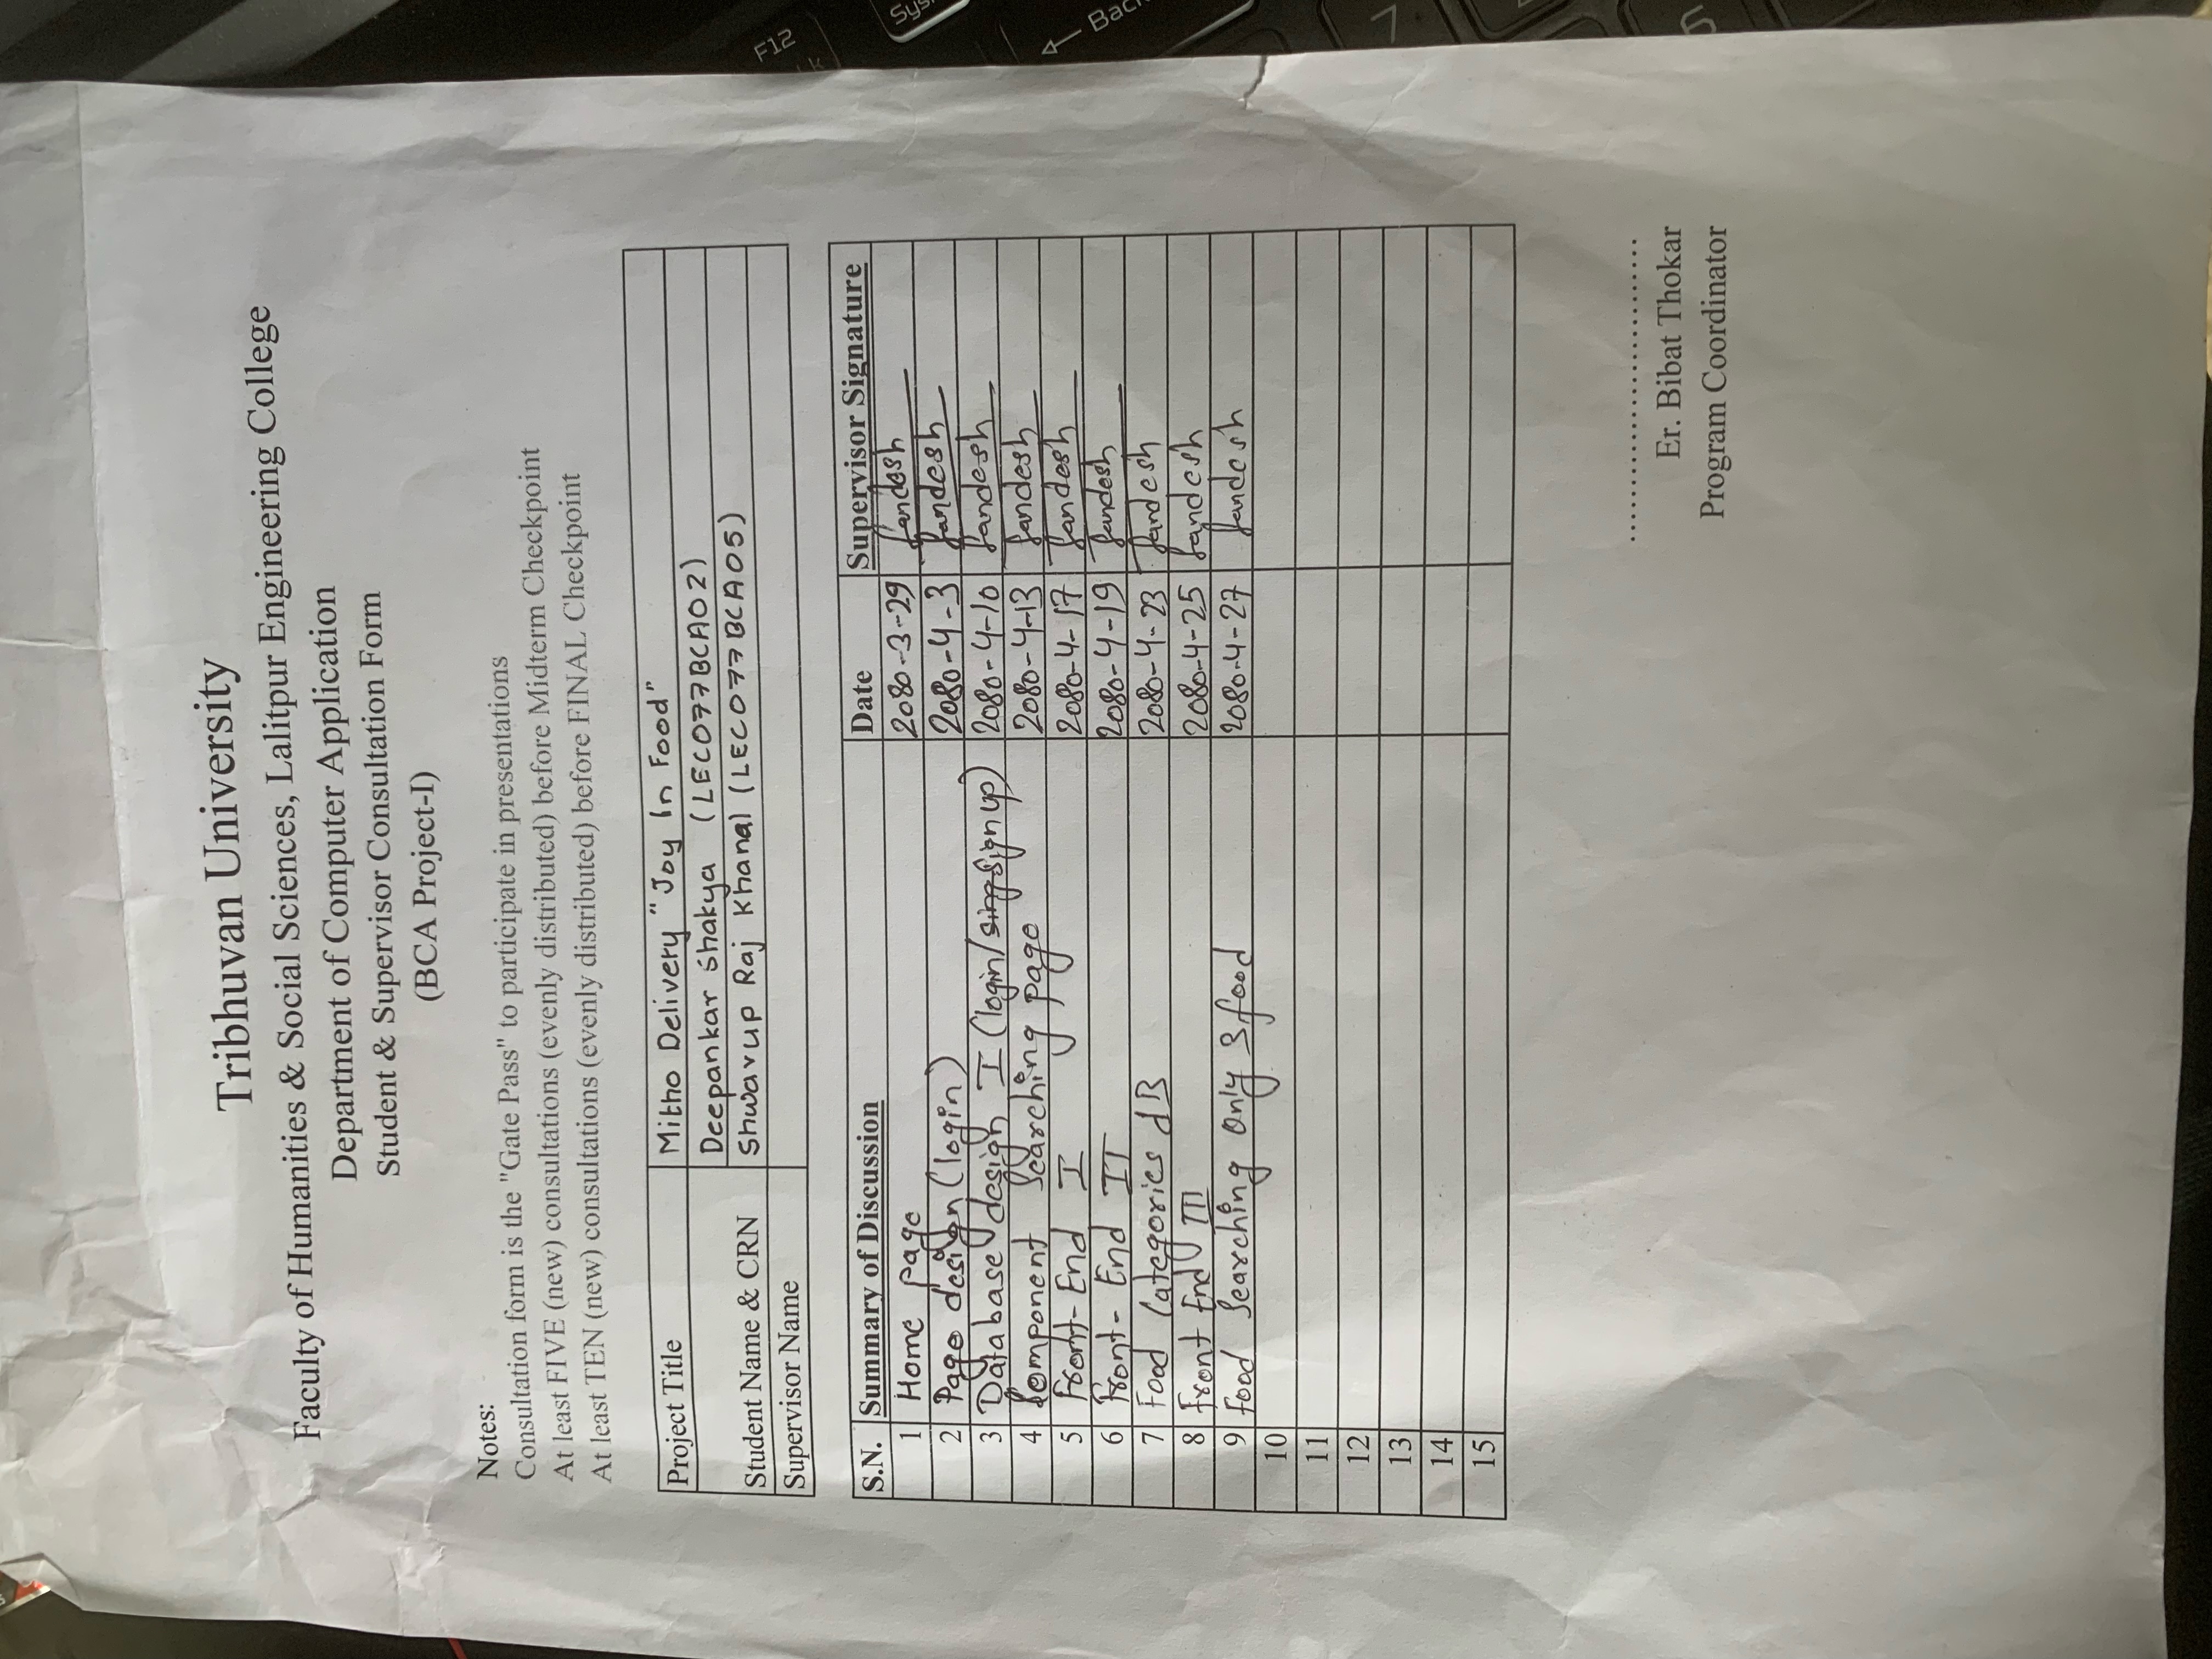 Tribhuvan University
Faculty of Humanities & Social Sciences, Lalitpur Engineering College
Department of Computer Application
Student & Supervisor Consultation Form
(BCA Project-I)
Notes:
Consultation form is the "Gate Pass" to participate in presentations
At least FIVE (new) consultations (evenly distributed) before Midterm Checkpoint
At least TEN (new) consultations (evenly distributed) before FINAL Checkpoint
Project Title Mitho Delivery "Joy In Food"
Deepankar Shakya (LEC077BCA02)
Student Name & CRN Shwarup Raj Khanal (LEC077BCA05)
Supervisor Name
S.N. Summary of Discussion Date Supervisor Signature
1 Home page 2080-3-29 Sandesh
2 Page design (login) 2080-4-3 Sandesh
3 Database design I (login/sing sign up) 2080-4-10 Sandesh
4 Component Searching page 2080-4-13 Sandesh
5 Front-End I 2080-4-17 Sandesh
6 Front-End II 2080-4-19 Sandesh
7 Food Categories dB 2080-4-23 Sandesh
8 Front End III 2080-4-25 Sandesh
9 Food Searching Only 3 food 2080-4-27 Sandesh
10
11
12
13
14
15
Er. Bibat Thokar
Program Coordinator
F12
Sys
← Bac
7